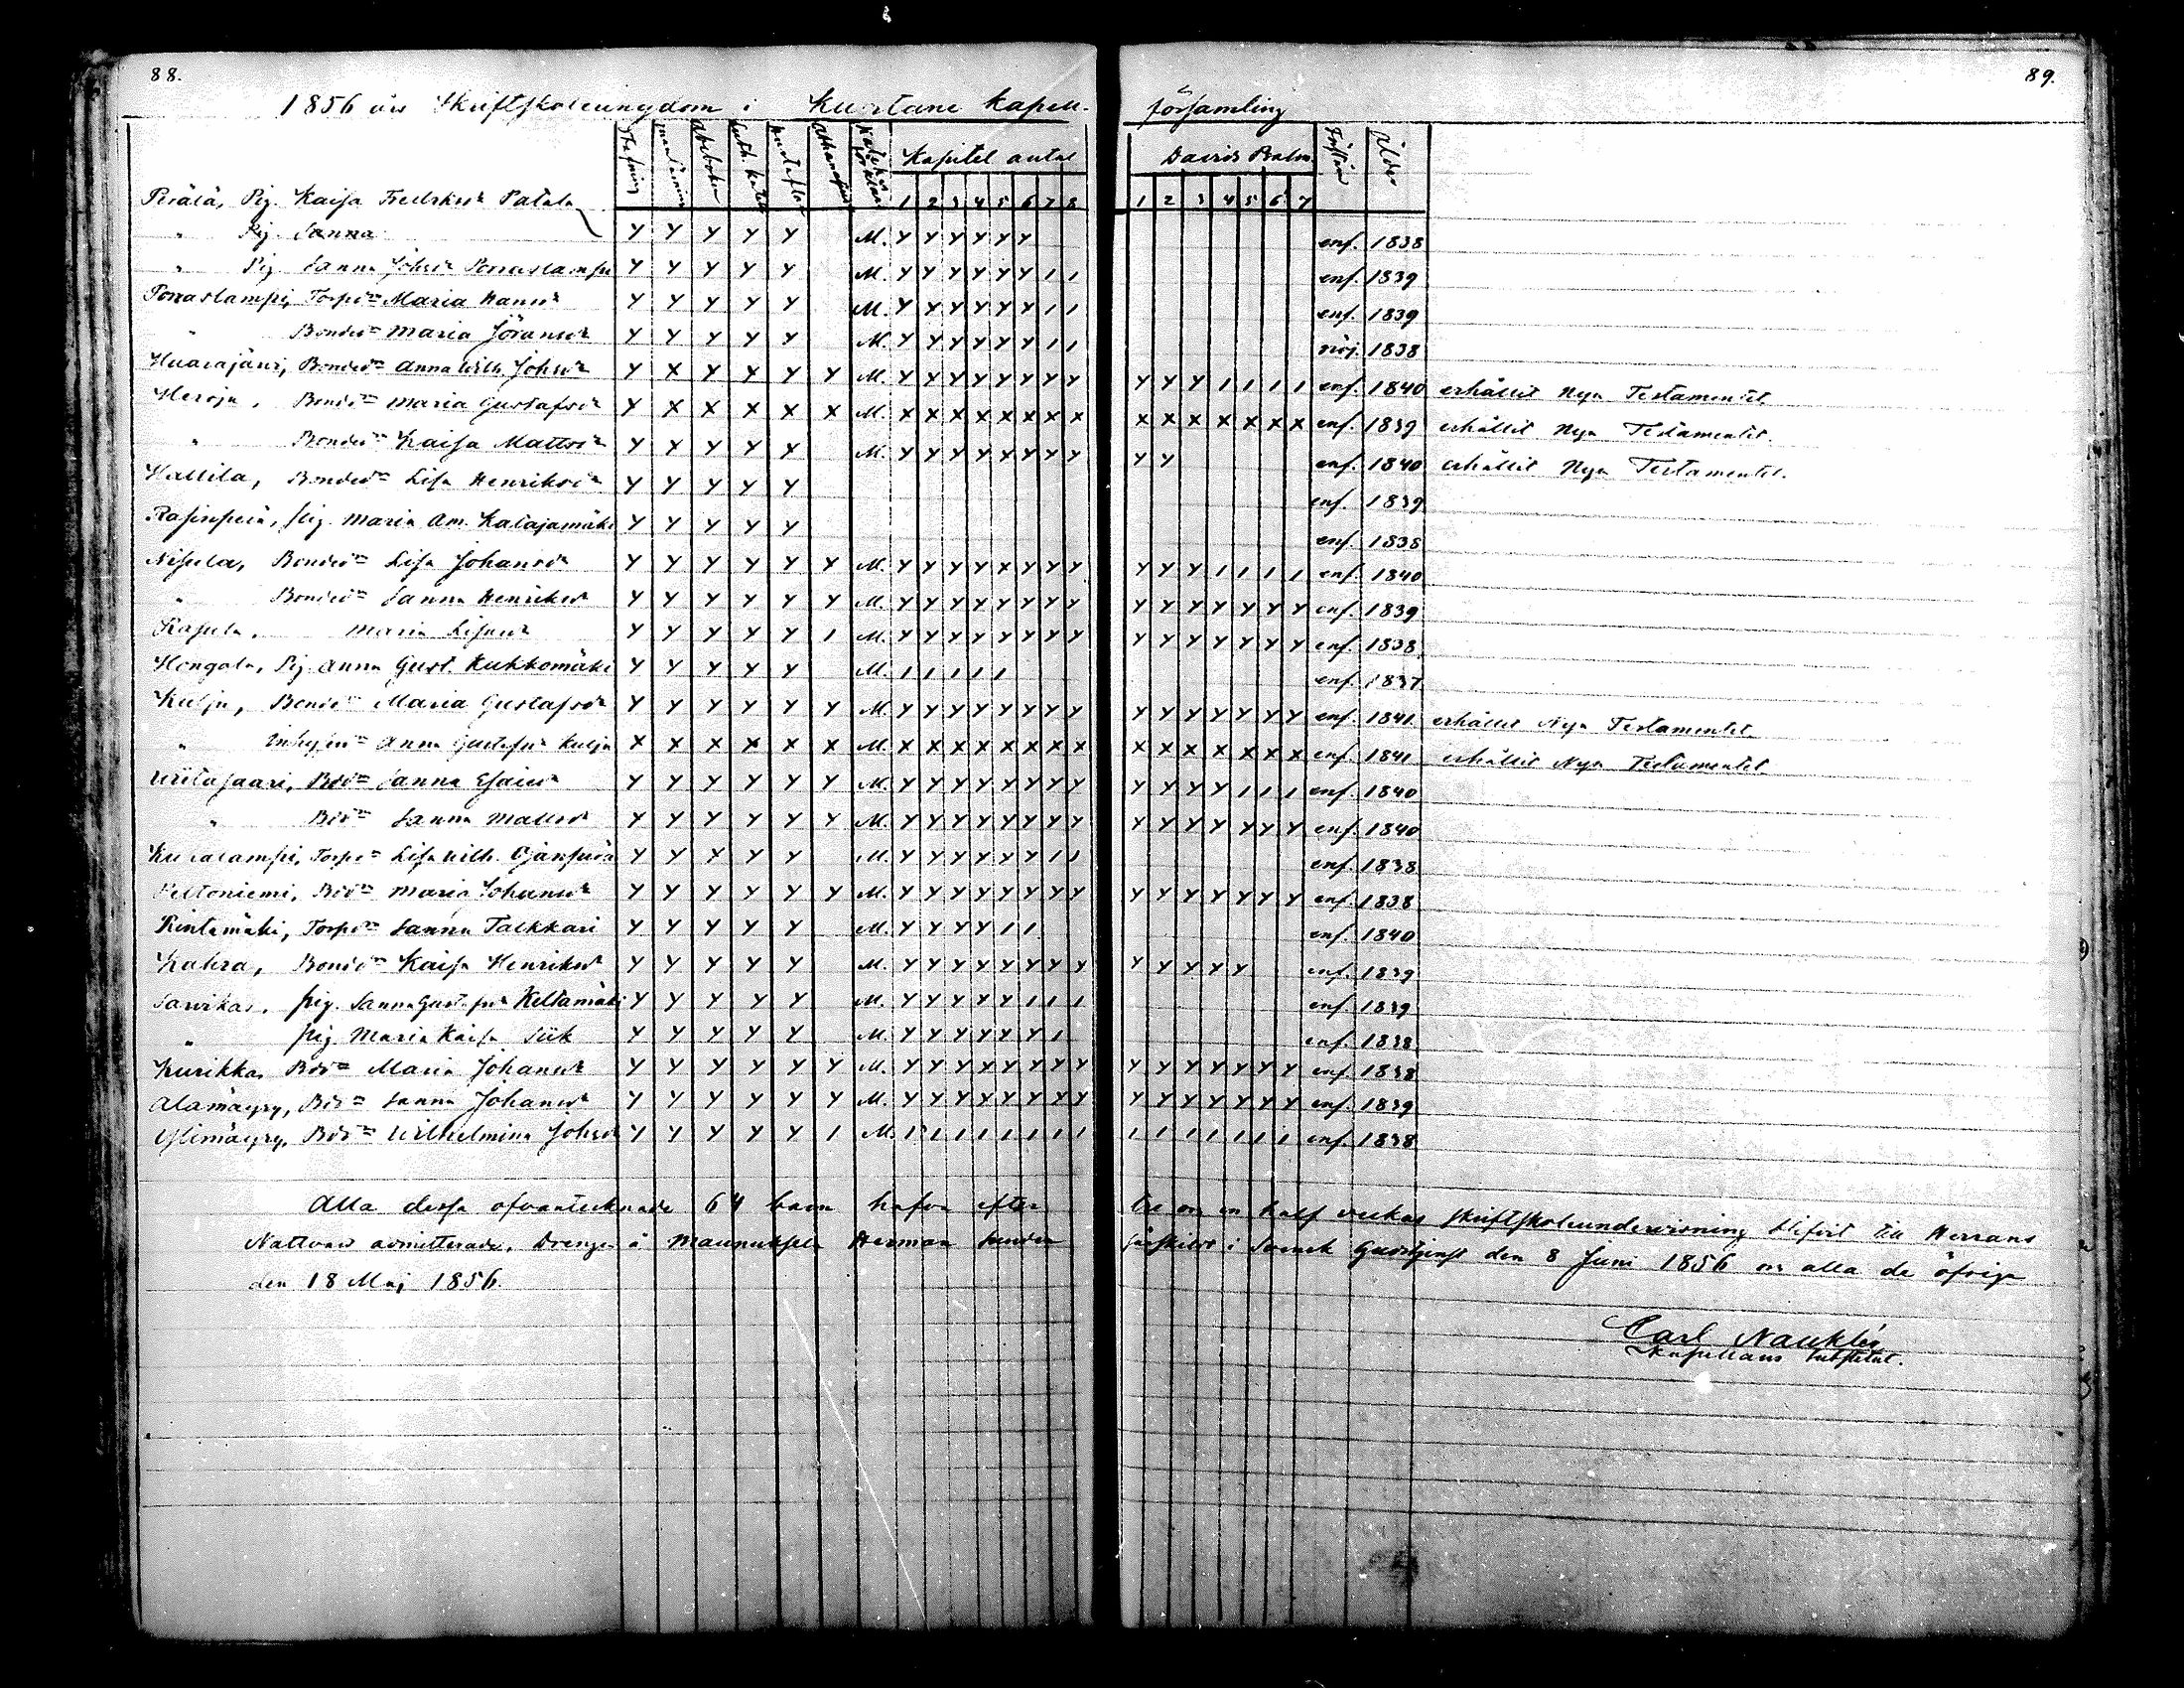 88.
89.
1856 års Skriftskoleungdom i Kuortane Kapell församling
Stafning
innanläsning
Abcboken
Luth. katek.
hustaflan
Kapitel antal
Davids Psalm.
Förstån
Ålder
1 2 3 4 5 6 7 8
1 2 3 4 5 6 7
Perälä, Pig. Kaisa Fredriksdr Patala
" Pig. Sanna Y Y Y Y Y M. Y Y Y Y Y Y enf. 1838
" Pig. Sanna Johsdr Porraslampi Y Y Y Y Y M. Y Y Y Y Y Y 1 1 enf. 1839
Porraslampi, Torpdr Maria Hansdr Y Y Y Y Y M. Y Y Y Y Y Y 1 1 enf. 1839
" Bonded Maria Jöransdr Y Y Y Y Y M. Y Y Y Y Y Y 1 1 nöj. 1838
Bonded Anna Wilh. Johsdr Y X Y Y Y Y M. Y Y Y Y Y Y Y Y Y Y Y 1 1 1 1 enf. 1840 erhållit Nya Testamentet.
Heroja, Bonded Maria Gustafsdr Y X X X X X M. X X X X X X X X X X X X X X X enf. 1839 erhållit Nya Testamentet.
" Bonded Kaisa Mattsdr Y X Y Y X M. Y Y Y Y X Y Y Y Y Y enf. 1840 erhållit Nya Testamentet.
Kallila, Bonded Lisa Henriksdr Y Y Y Y Y enf. 1839
Rasinperä, pig. Maria Am. Katajamäki Y Y Y Y Y enf. 1838
Nisula, Bonded Lisa Johansdr Y Y Y Y Y Y M. Y Y Y Y X Y Y Y Y Y Y 1 1 1 1 enf. 1840
" Bonded Sanna Henriksdr Y Y Y Y Y Y M. Y Y Y Y Y Y Y Y Y Y Y Y Y Y Y enf. 1839
Maria Y Y Y Y Y 1 M. Y Y Y Y Y Y Y Y Y Y Y Y Y Y Y enf. 1838
Hongola, Pig. Anna Gust. Kukkomäki Y Y Y Y Y M. 1 1 1 1 1 enf. 1837
Kulju, Bonded Maria Gustafsdr Y Y Y Y Y Y M. Y Y Y Y Y Y Y Y Y Y Y Y Y Y Y enf. 1841 erhållit Nya Testamentet.
" Anna Gustafsdr Kulju X X X X X X M. X X X X X X X X X X X X X X X enf. 1841 erhållit Nya Testamentet.
Riitasaari, Bdr Sanna Esaiedr Y Y Y Y Y Y M. Y Y Y Y Y Y Y Y Y Y Y Y 1 1 1 enf. 1840
" Bdr Sanna Mattsdr Y Y Y Y Y Y M. Y Y Y Y Y Y Y Y Y Y Y Y Y Y Y enf. 1840
Torpdr Lisa Wilh. Ojanperä Y Y X Y Y M. Y Y Y Y Y Y 1 1 enf. 1838
Peltoniemi, Bdr Maria Johansdr Y Y Y Y Y Y M. Y Y Y Y Y Y Y Y Y Y Y Y Y Y Y enf. 1838
Rintamäki, Torpdr Sanna Talkkari Y Y Y Y Y M. Y Y Y Y 1 1 enf. 1840
Kahra, Bonded Kaisa Henriksdr Y Y Y Y Y M. Y Y Y Y Y Y Y Y Y Y Y Y Y enf. 1839
Sarvikas, pig. Sanna Gustafsdr Keltamäki Y Y Y Y Y M. Y Y Y Y Y 1 1 1 enf. 1839
" pig. Maria Kaisa Siik Y Y Y Y Y M. Y Y Y Y Y Y 1 enf. 1838
Kurikka, Bdr Maria Johansdr Y Y Y Y Y Y M. Y Y Y Y Y Y Y Y Y Y Y Y Y Y Y enf. 1838
Alamäyry, Bdr Sanna Johansdr Y Y Y Y Y Y M. Y Y Y Y Y Y Y Y Y Y Y Y Y Y Y enf. 1839
Ylimäyry, Bdr Wilhelmina Johsdr Y Y Y Y Y 1 M. 1 1 1 1 1 1 1 1 1 1 1 1 1 1 1 enf. 1838
Alla dessa ofvantecknade 64 barn hafva efter tre och en half veckas skriftskoleundervisning blifvit till Herrans
Nattvard admitterade, Drengen å Maunuksela Herman Sundén särskildt i Svensk Gudstjenst den 8 Juni 1856 och alla de öfriga
den 18 Maj 1856.
Carl Nauklér
Kapellans Substitut.